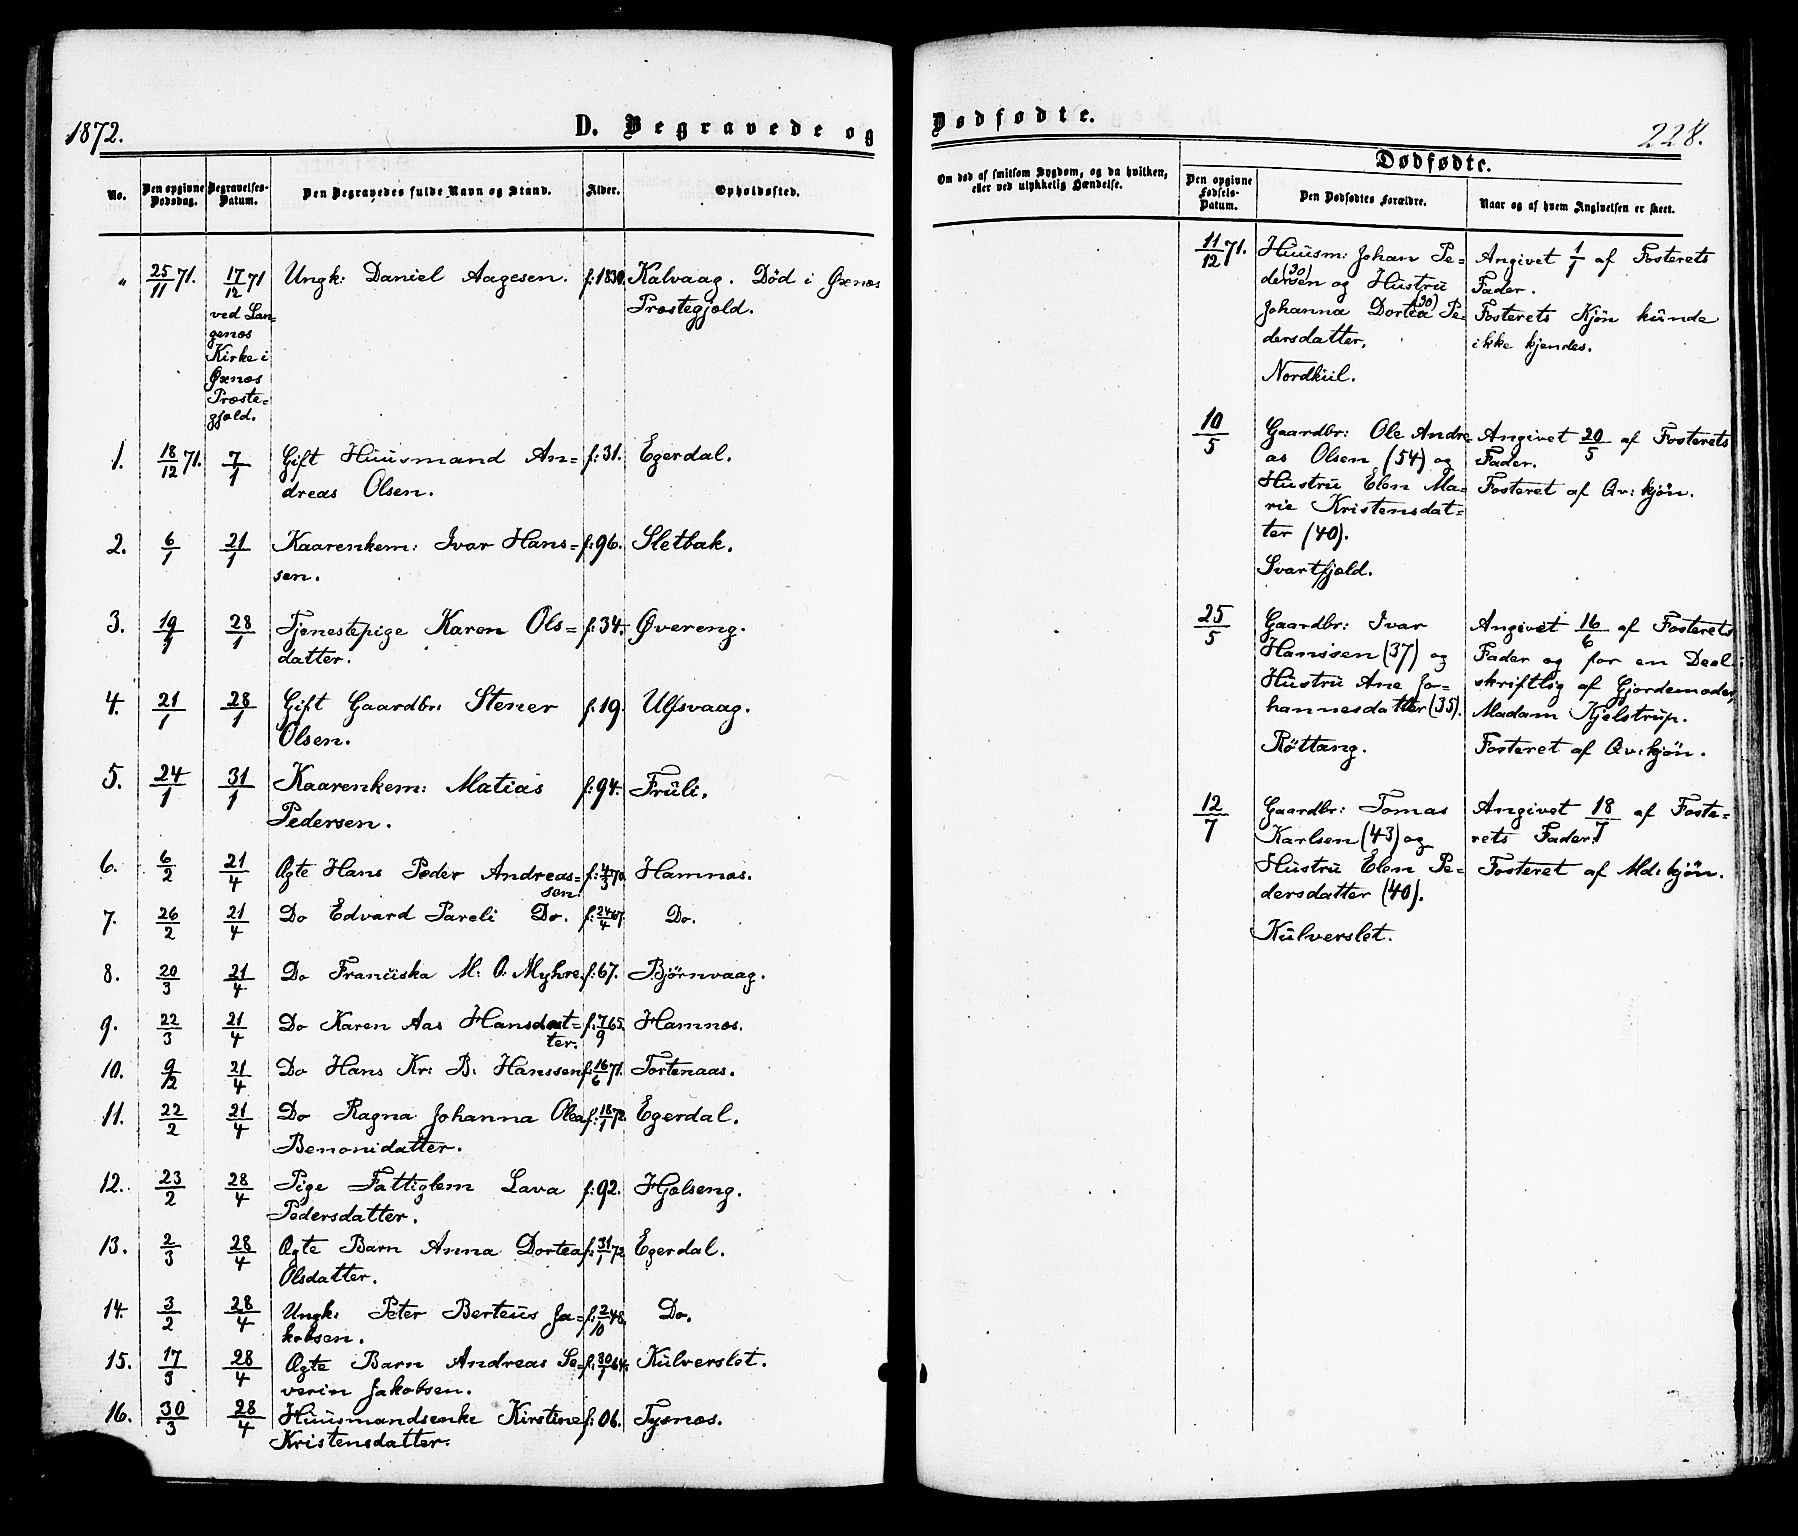 1872.
D. Begravede og
No.
Den opgivne Dødsdag.
Begravelses-Datum.
Den Begravedes fulde Navn og Stand.
Alder.
Opholdssted.
" 25/11 71. 17/12 71 Ungk: Daniel Aagesen. f: 1830. Kalvaag. Død i Øxnæs
ved Lan- Præstegjæld.
genæs
Kirke i
Øxnæs
Præste-
gjæld.
1. 18/12 71. 7/1 Gift Huusmand An- f: 31. Egerdal.
dreas Olsen.
2. 6/1 21/1 Kaarenkem: Ivar Hans- f: 96. Sletbak.
sen.
3. 19/1 28/1 Tjenestepige Karen Ols- f: 34. Øvereng.
datter.
4. 21/1 28/1 Gift Gaardbr: Stener f: 19. Ulfsvaag.
Olsen.
5. 24/1 31/1 Kaarenkem: Matias f: 94. Früli.
Pedersen.
6. 6/2 21/4 Ægte Hans Peder Andreas- f: 4/3 70. Hamnæs.
sen.
7. 26/2 21/4 Do Edvard Pareli Do. f: 24/4 67. Do.
8. 20/3 21/4 Do Franciska M: O: Myhre. f: 67. Bjørnvaag.
9. 22/3 21/4 Do Karen Aas Hansdat- f: 7/9 65. Hamnæs.
ter.
10. 9/12 21/4 Do Hans Kr: B: Hanssen f: 16/6 71. Tortenaas.
11. 22/2 21/4 Do Ragna Johanna Olea f: 18/1 72. Egerdal.
Benonidatter.
12. 23/2 28/4 Pige Fattiglem Lava f: 92. Hjelseng.
Pedersdatter.
13. 2/3 28/4 Ægte Barn Anna Dortea f: 31/1 72. Egerdal.
Olsdatter.
14. 3/2 28/4 Ungk: Peter Berteus Ja- f: 2/10 48. Do.
kobsen.
15. 17/3 28/4 Ægte Barn Andreas Se- f: 30/7 64. Kulverslet.
verin Jakobsen.
16. 30/3 28/4 Huusmandsenke Kirstine f: 06. Tysnæs.
Kristensdatter.
Dødfødte.
228.
Om død af smitsom Sygdom, og da hvilken,
eller ved ulykkelig Hændelse.
Dødfødte.
Den opgivne Fødsels-Datum.
Den Dødfødtes Forældre.
Naar og af hvem Angivelsen er skeet.
11/12 71. Huusm: Johan Pe- Angivet 1/1 af Fosterets
dersen (30) og Hustru Fader.
Johanna Dortea (30) Pe- Fosterets Kjøn kunde
dersdatter. ikke kjendes.
Nordkiil.
10/5 Gaardbr: Ole Andre- Angivet 20/5 af Fosterets
as Olsen (54) og Fader.
Hustru Elen Ma- Fosteret af Qv: kjøn.
rie Kristensdat-
ter (40).
Svartfjeld.
25/5 Gaardbr: Ivar Angivet 16/6 af Fosterets
Hanssen (37) og Fader og for en Deel
Hustru Ane Jo- skriftlig af Gjordemoder,
hannesdatter (35). Madam Kjelstrup.
Røttang. Fosteret af Qv: kjøn.
12/7 Gaardbr: Tomas Angivet 18/7 af Foste-
Karlsen (43) og rets Fader.
Hustru Elen Pe- Fosteret af Md: kjøn.
dersdatter (40).
Kulverslet.